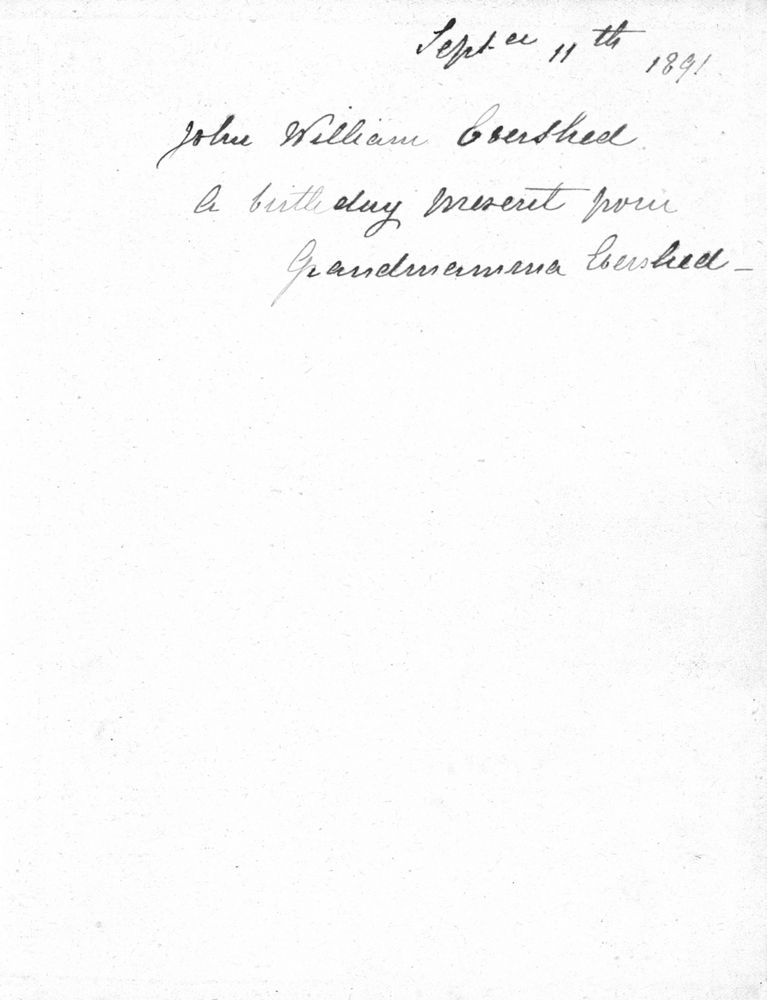 Septer 11th 1891
John William Evershed
A birthday present from
Grandmamma Evershed –